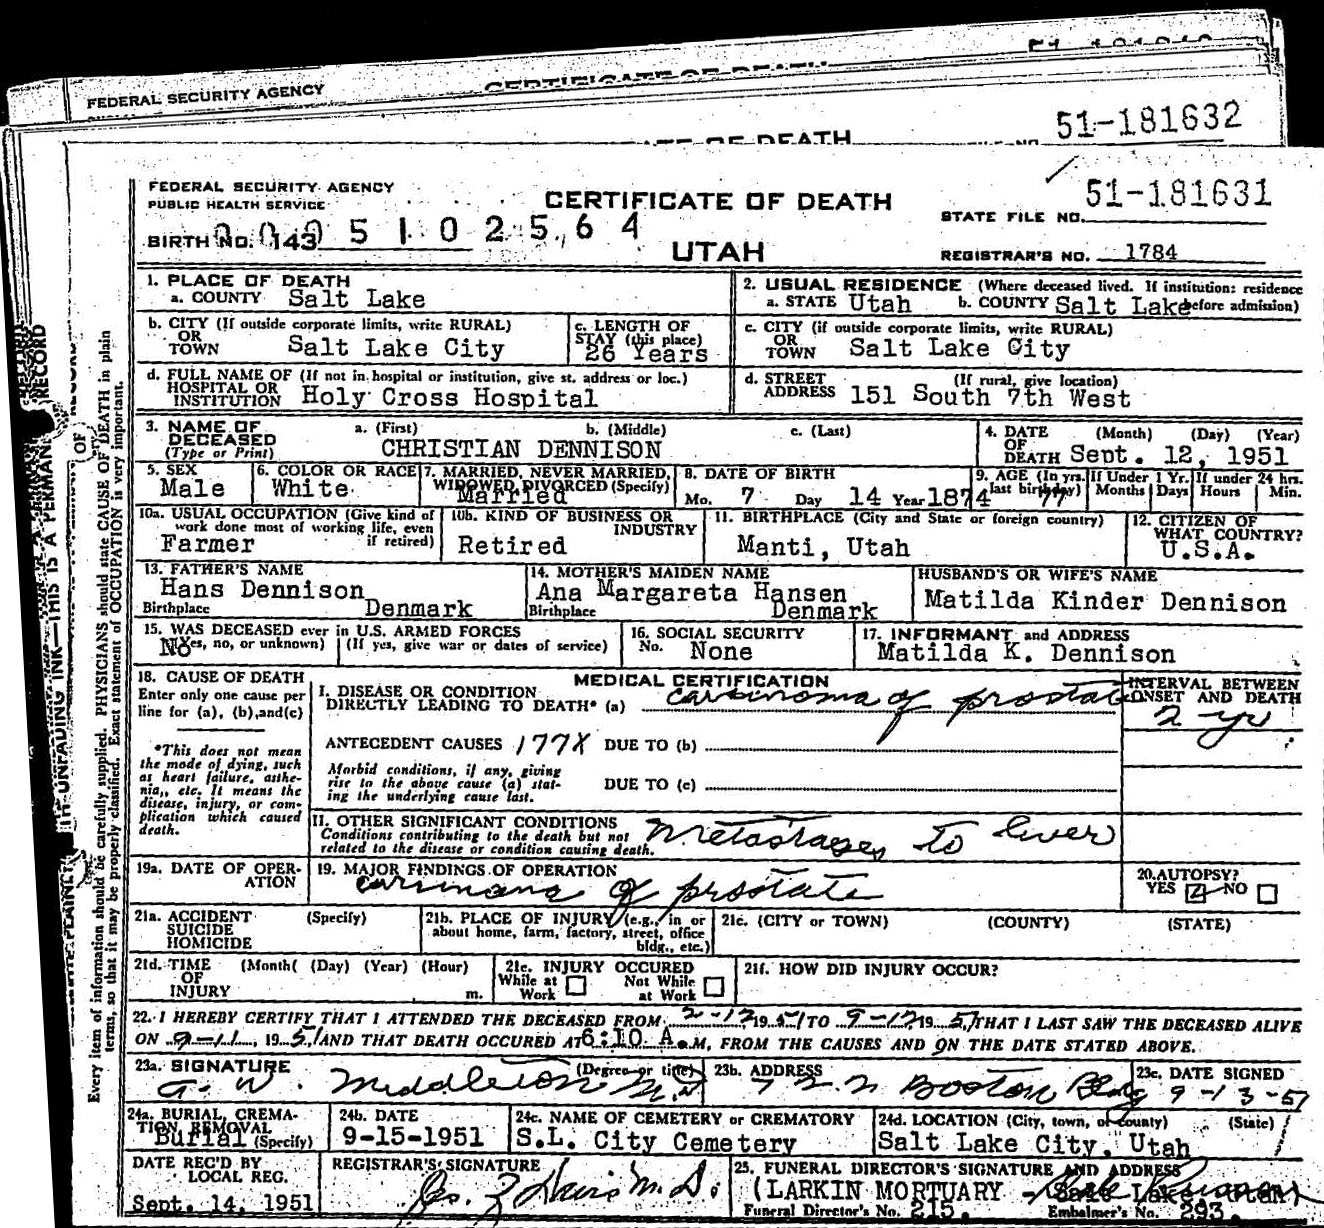 FEDERAL SECURITY AGENCY
51-181632
FEDERAL SECURITY AGENCY
PUBLIC HEALTH SERVICE
CERTIFICATE OF DEATH
51-181631
STATE FILE NO.
BIRTH NO. 143
UTAH
REGISTRAR'S NO. 1784
1. PLACE OF DEATH
a. COUNTY Salt Lake
2. USUAL RESIDENCE (Where deceased lived. If institution: residence
a. STATE Utah b. COUNTY Salt Lake before admission)
b. CITY (If outside corporate limits, write RURAL)
OR
TOWN Salt Lake City
c. LENGTH OF
STAY (this place)
26 Years
c. CITY (if outside corporate limits, write RURAL)
OR
TOWN Salt Lake City
d. FULL NAME OF (If not in hospital or institution, give st. address or loc.)
HOSPITAL OR
INSTITUTION Holy Cross Hospital
d. STREET (If rural, give location)
ADDRESS 151 South 7th West
3. NAME OF a. (First) b. (Middle) c. (Last)
DECEASED
(Type or Print) CHRISTIAN DENNISON
4. DATE (Month) (Day) (Year)
OF
DEATH Sept. 12, 1951
5. SEX
Male
6. COLOR OR RACE
White
7. MARRIED, NEVER MARRIED,
WIDOWED, DIVORCED (Specify)
Married
8. DATE OF BIRTH
Mo. 7 Day 14 Year 1874
9. AGE (In yrs.
last birthday)
77
If Under 1 Yr.
Months Days
If under 24 hrs.
Hours Min.
10a. USUAL OCCUPATION (Give kind of
work done most of working life, even
if retired)
Farmer
10b. KIND OF BUSINESS OR
INDUSTRY
Retired
11. BIRTHPLACE (City and State or foreign country)
Manti, Utah
12. CITIZEN OF
WHAT COUNTRY?
U.S.A.
13. FATHER'S NAME
Hans Dennison
Birthplace Denmark
14. MOTHER'S MAIDEN NAME
Ana Margareta Hansen
Birthplace Denmark
HUSBAND'S OR WIFE'S NAME
Matilda Kinder Dennison
15. WAS DECEASED ever in U.S. ARMED FORCES
(Yes, no, or unknown) (If yes, give war or dates of service)
No
16. SOCIAL SECURITY
No. None
17. INFORMANT and ADDRESS
Matilda K. Dennison
18. CAUSE OF DEATH
Enter only one cause per
line for (a), (b), and (c)
*This does not mean
the mode of dying, such
as heart failure, asthe-
nia,, etc. It means the
disease, injury, or com-
plication which caused
death.
MEDICAL CERTIFICATION
I. DISEASE OR CONDITION
DIRECTLY LEADING TO DEATH* (a) carcinoma of prostate
INTERVAL BETWEEN
ONSET AND DEATH
2 yr
ANTECEDENT CAUSES 177X DUE TO (b)
Morbid conditions, if any, giving
rise to the above cause (a) stat-
ing the underlying cause last.
DUE TO (c)
II. OTHER SIGNIFICANT CONDITIONS
Conditions contributing to the death but not
related to the disease or condition causing death.
Metastases to liver
19a. DATE OF OPER-
ATION
19. MAJOR FINDINGS OF OPERATION
carcinoma of prostate
20. AUTOPSY?
YES NO
21a. ACCIDENT (Specify)
SUICIDE
HOMICIDE
21b. PLACE OF INJURY (e.g., in or
about home, farm, factory, street, office
bldg., etc.)
21c. (CITY or TOWN) (COUNTY) (STATE)
21d. TIME (Month( (Day) (Year) (Hour)
OF
INJURY m.
21e. INJURY OCCURED
While at Not While
Work at Work
21f. HOW DID INJURY OCCUR?
22. I HEREBY CERTIFY THAT I ATTENDED THE DECEASED FROM 2-12 1951 TO 9-12 1951, THAT I LAST SAW THE DECEASED ALIVE
ON 9-11, 1951, AND THAT DEATH OCCURED AT 6:10 A.M, FROM THE CAUSES AND ON THE DATE STATED ABOVE.
23a. SIGNATURE (Degree or title)
A. W. Middleton M.D
23b. ADDRESS
722 Boston Bldg
23c. DATE SIGNED
9-13-51
24a. BURIAL, CREMA-
TION, REMOVAL
Burial (Specify)
24b. DATE
9-15-1951
24c. NAME OF CEMETERY or CREMATORY
S.L. City Cemetery
24d. LOCATION (City, town, or county) (State)
Salt Lake City, Utah
DATE REC'D BY
LOCAL REG.
Sept. 14, 1951
REGISTRAR'S SIGNATURE
25. FUNERAL DIRECTOR'S SIGNATURE AND ADDRESS
(LARKIN MORTUARY - Salt Lake, Utah)
Funeral Director's No. 215. Embalmer's No. 293.
Every item of information should be carefully supplied. PHYSICIANS should state CAUSE OF DEATH in plain
terms, so that it may be properly classified. Exact statement of OCCUPATION is very important.